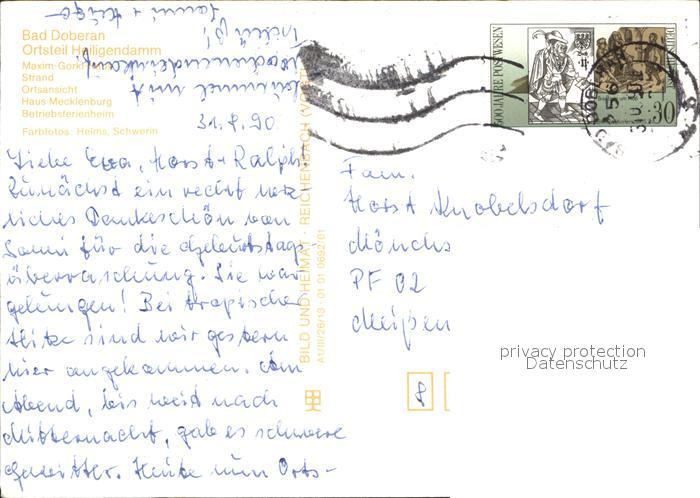 Bad Doberan
Ortsteil Heiligendamm
Maxim-Gorki-
Strand
Ortsansicht
Haus Mecklenburg
Betriebsferienheim
Farbfotos: Helms, Schwerin
31.8.90
Liebe Eva, Horst + Ralph,
Zunächst ein recht herz-
liches Dankeschön von
Sanni für die Geburtstags-
überraschung. Sie war
gelungen! Bei tropischer
Hitze sind wir gestern
hier angekommen. Am
Abend, bis weit nach
Mitternacht, gab es schwere
Gewitter. Heute nun Orts-
bummel mit
BILD UND HEIMAT · REICHENBACH (VOGTL
A1/III/26/13 01 01 0692/01
500 JAHRE POSTWESEN
30
Fam.
Horst Knobelsdorf
Mönchs
PF 02
Meißen
8
privacy protection
Datenschutz